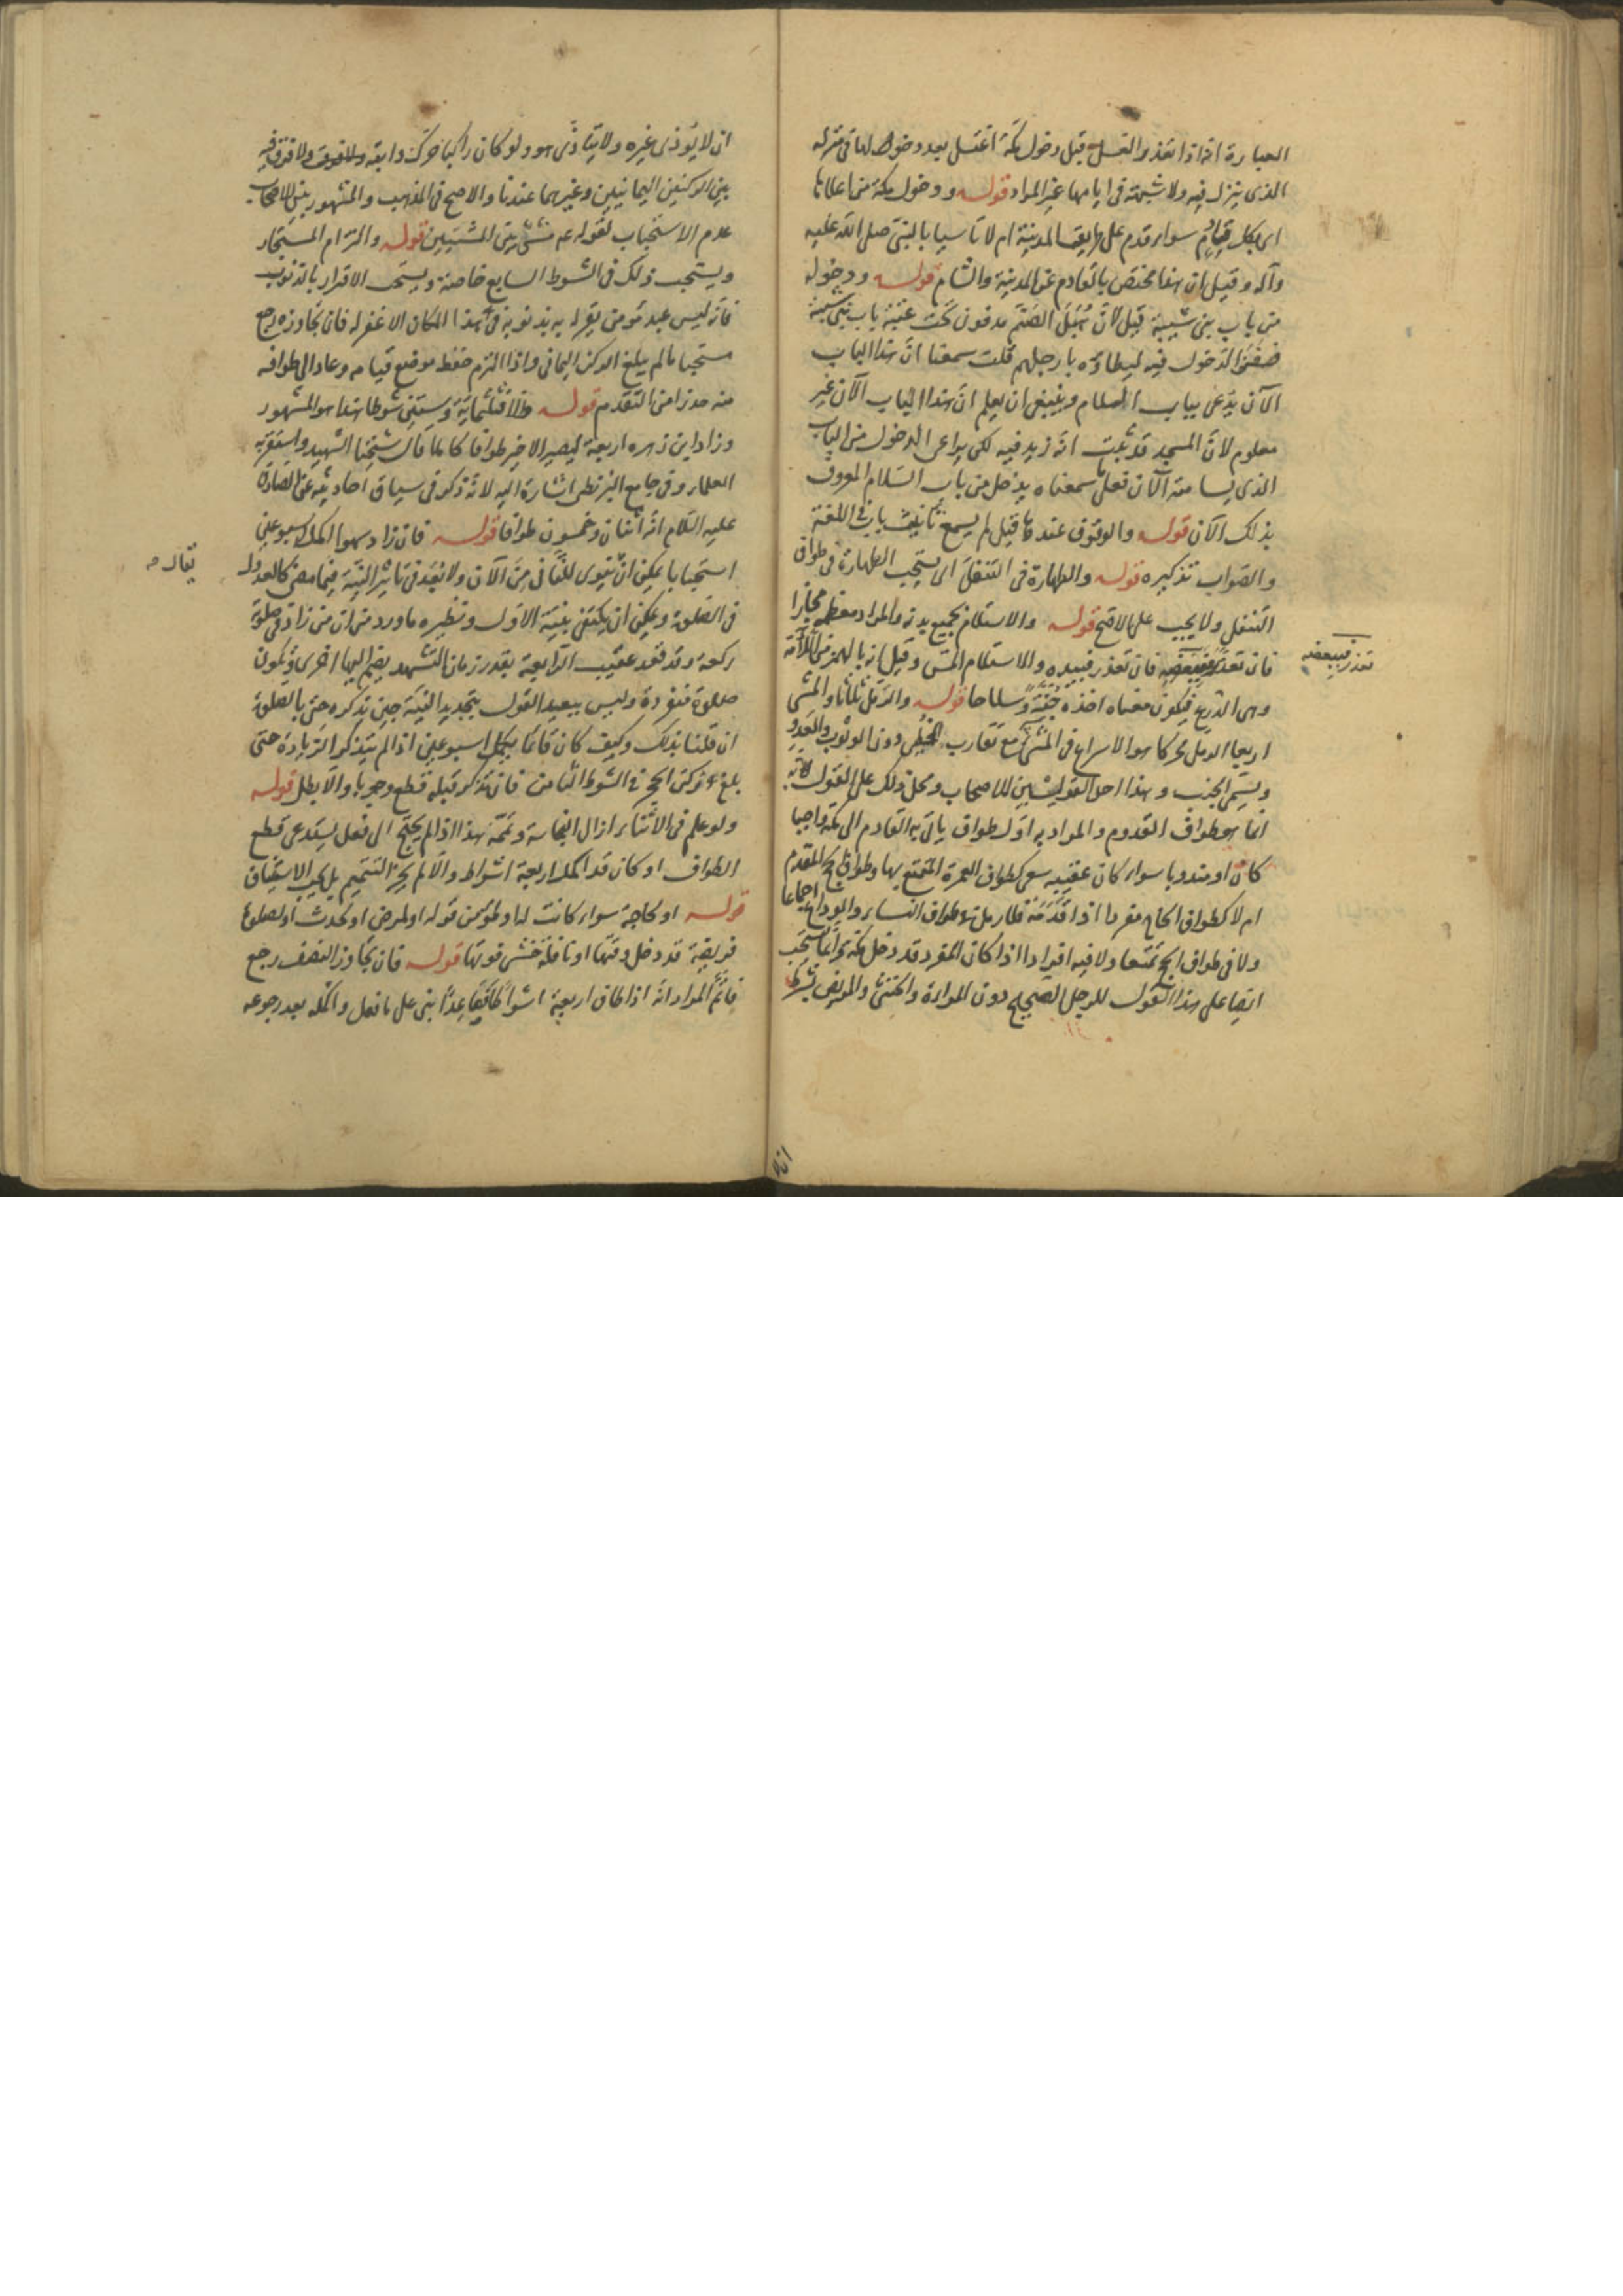 العبارة انه اذا تعذر الغسل قبل دخول مكة اغتسل بعد دخولها فى منزله
الذى ينزل فيه ولا شبهة فى ايامها غير المراد قوله ودخول مكة من اعلاها
اى لكل قادم سواء قدم على طريق المدينة ام لا تاسيا بالنبى صلى الله عليه
وآله وقيل ان هذا مختص بالقادم عن المدينة والشام قوله ودخوله
من باب بنى شيبة قيل لان هُبَلَ الصنم مدفون تحت عتبة باب بنى شيبة
الدخول فيه ليطاؤه بارجلهم قلت سمعنا ان هذا الباب
الآن يدعى بباب السلام وينبغى ان يعلم ان هذا الباب الآن غير
معلوم لان المسجد قد ثبت انه زيد فيه لكى يراعى الدخول من الباب
الذى يسامته الآن فعلى ما سمعناه يدخل من باب السلام المعروف
بذلك الآن قوله والوقوف عندها قيل لم يسمع تانيث باب فى اللغة
والصواب تذكيره قوله والطهارة فى التنفل اى يستحب الطهارة فى طواف
التنفل ولا يجب على الاصح قوله والاستلام بجميع بدنه والمراد معظمه مجازا
فان تعذر فببعضه فان تعذر فبيده والاستلام المس وقيل انه بالهمز من اللأمة
تعذر فببعضه
وهى الدرع فيكون معناه اخذه جُنَّةً وسلاحا قوله والرمل ثلاثا والمشى
اربعا الرمل محركا هو الاسراع فى المشى مع تقارب الخطى دون الوثوب والعدو
ويسمى الخبب وهذا احد القولين للاصحاب ومحل ذلك على القول به
انما هو طواف القدوم والمراد به اول طواف ياتى به القادم الى مكة واجبا
كان او مندوبا سواء كان عقيبه سعى كطواف العمرة المتمتع بها وطواف الحج المقدم
ام لا كطواف الحاج مفردا اذا قدمه فلا رمل فى طواف النساء والوداع اجماعا
ولا فى طواف الحج تمتعا ولا فيه افرادا اذا كان المفرد قد دخل مكة وانما يستحب
ايضا على هذا القول للرجل الصحيح دون المراءة والخنثى والمريض بشرط
ان
ان لا يوذى غيره ولا يتاذى هو ولو كان راكبا حرك دابته ولا فرق فيه
بين الركنين اليمانيين وغيرهما عندنا والاصح فى المذهب والمشهور بين الاصحاب
عدم الاستحباب لقوله ع م مشى بين المشيين قوله والتزام المستجار
ويستحب ذلك فى الشوط السابع خاصة ويستحب الاقرار بالذنوب
فانه ليس عبد مؤمن يقر لربه بذنوبه فى هذا المكان الا غفر له فان تجاوزه رجع
مستحبا ما لم يبلغ الركن اليمانى واذا التزم حفظ موضع قيامه وعاد الى طوافه
منه حذرا من التقدم قوله والا فثلثمائة وستين شوطا هذا هو المشهور
وزاد ابن زهره اربعة ليصير الاخير طوافا كاملا قال شيخنا الشهيد واستقر به
العلماء وفى جامع البزنطى اشارة اليه لانه ذكر فى سياق احاديثه عن الصادق
عليه السلام انه اثنان وخمسون طوافا قوله فان زاد سهوا اكمل اسبوعين
استحبابا يمكن ان ينوى للثانى من الآن ولا بُعد فى تاثير النية فيما مضى كالعدول
يقال م
فى الصلوة ويمكن ان يكتفى بنية الاول ونظيره ما ورد من ان من زاد فى صلوة
ركعة وقد قعد عقيب الرابعة بقدر زمان التشهد يضم اليها اخرى ويكون
صلوة منفردة وليس ببعيد القول بتجديد النية حين تذكره حتى بالصلوة
ان قلنا بذلك وكيف كان فانما يكمل اسبوعين اذا لم يتذكر الزيادة حتى
بلغ ركن الحجر فى الشوط الثامن فان تذكر قبله قطع وجوبا والا بطل قوله
ولو علم فى الاثناء ازال النجاسة وتممه هذا اذا لم يحتج الى فعل يستدعى قطع
الطواف او كان قد اكمل اربعة اشواط والا لم يجز التتميم بل يجب الاستيناف
قوله او لحاجة سواء كانت له او لمؤمن قوله او لمرض او لحدث او لصلوة
فريضة قد دخل وقتها او نافلة خشى فوتها قوله فان تجاوز النصف رجع
فاتم المراد انه اذا طاف اربعة اشواط فصاعدا بنى على ما فعل واكمله بعد رجوعه